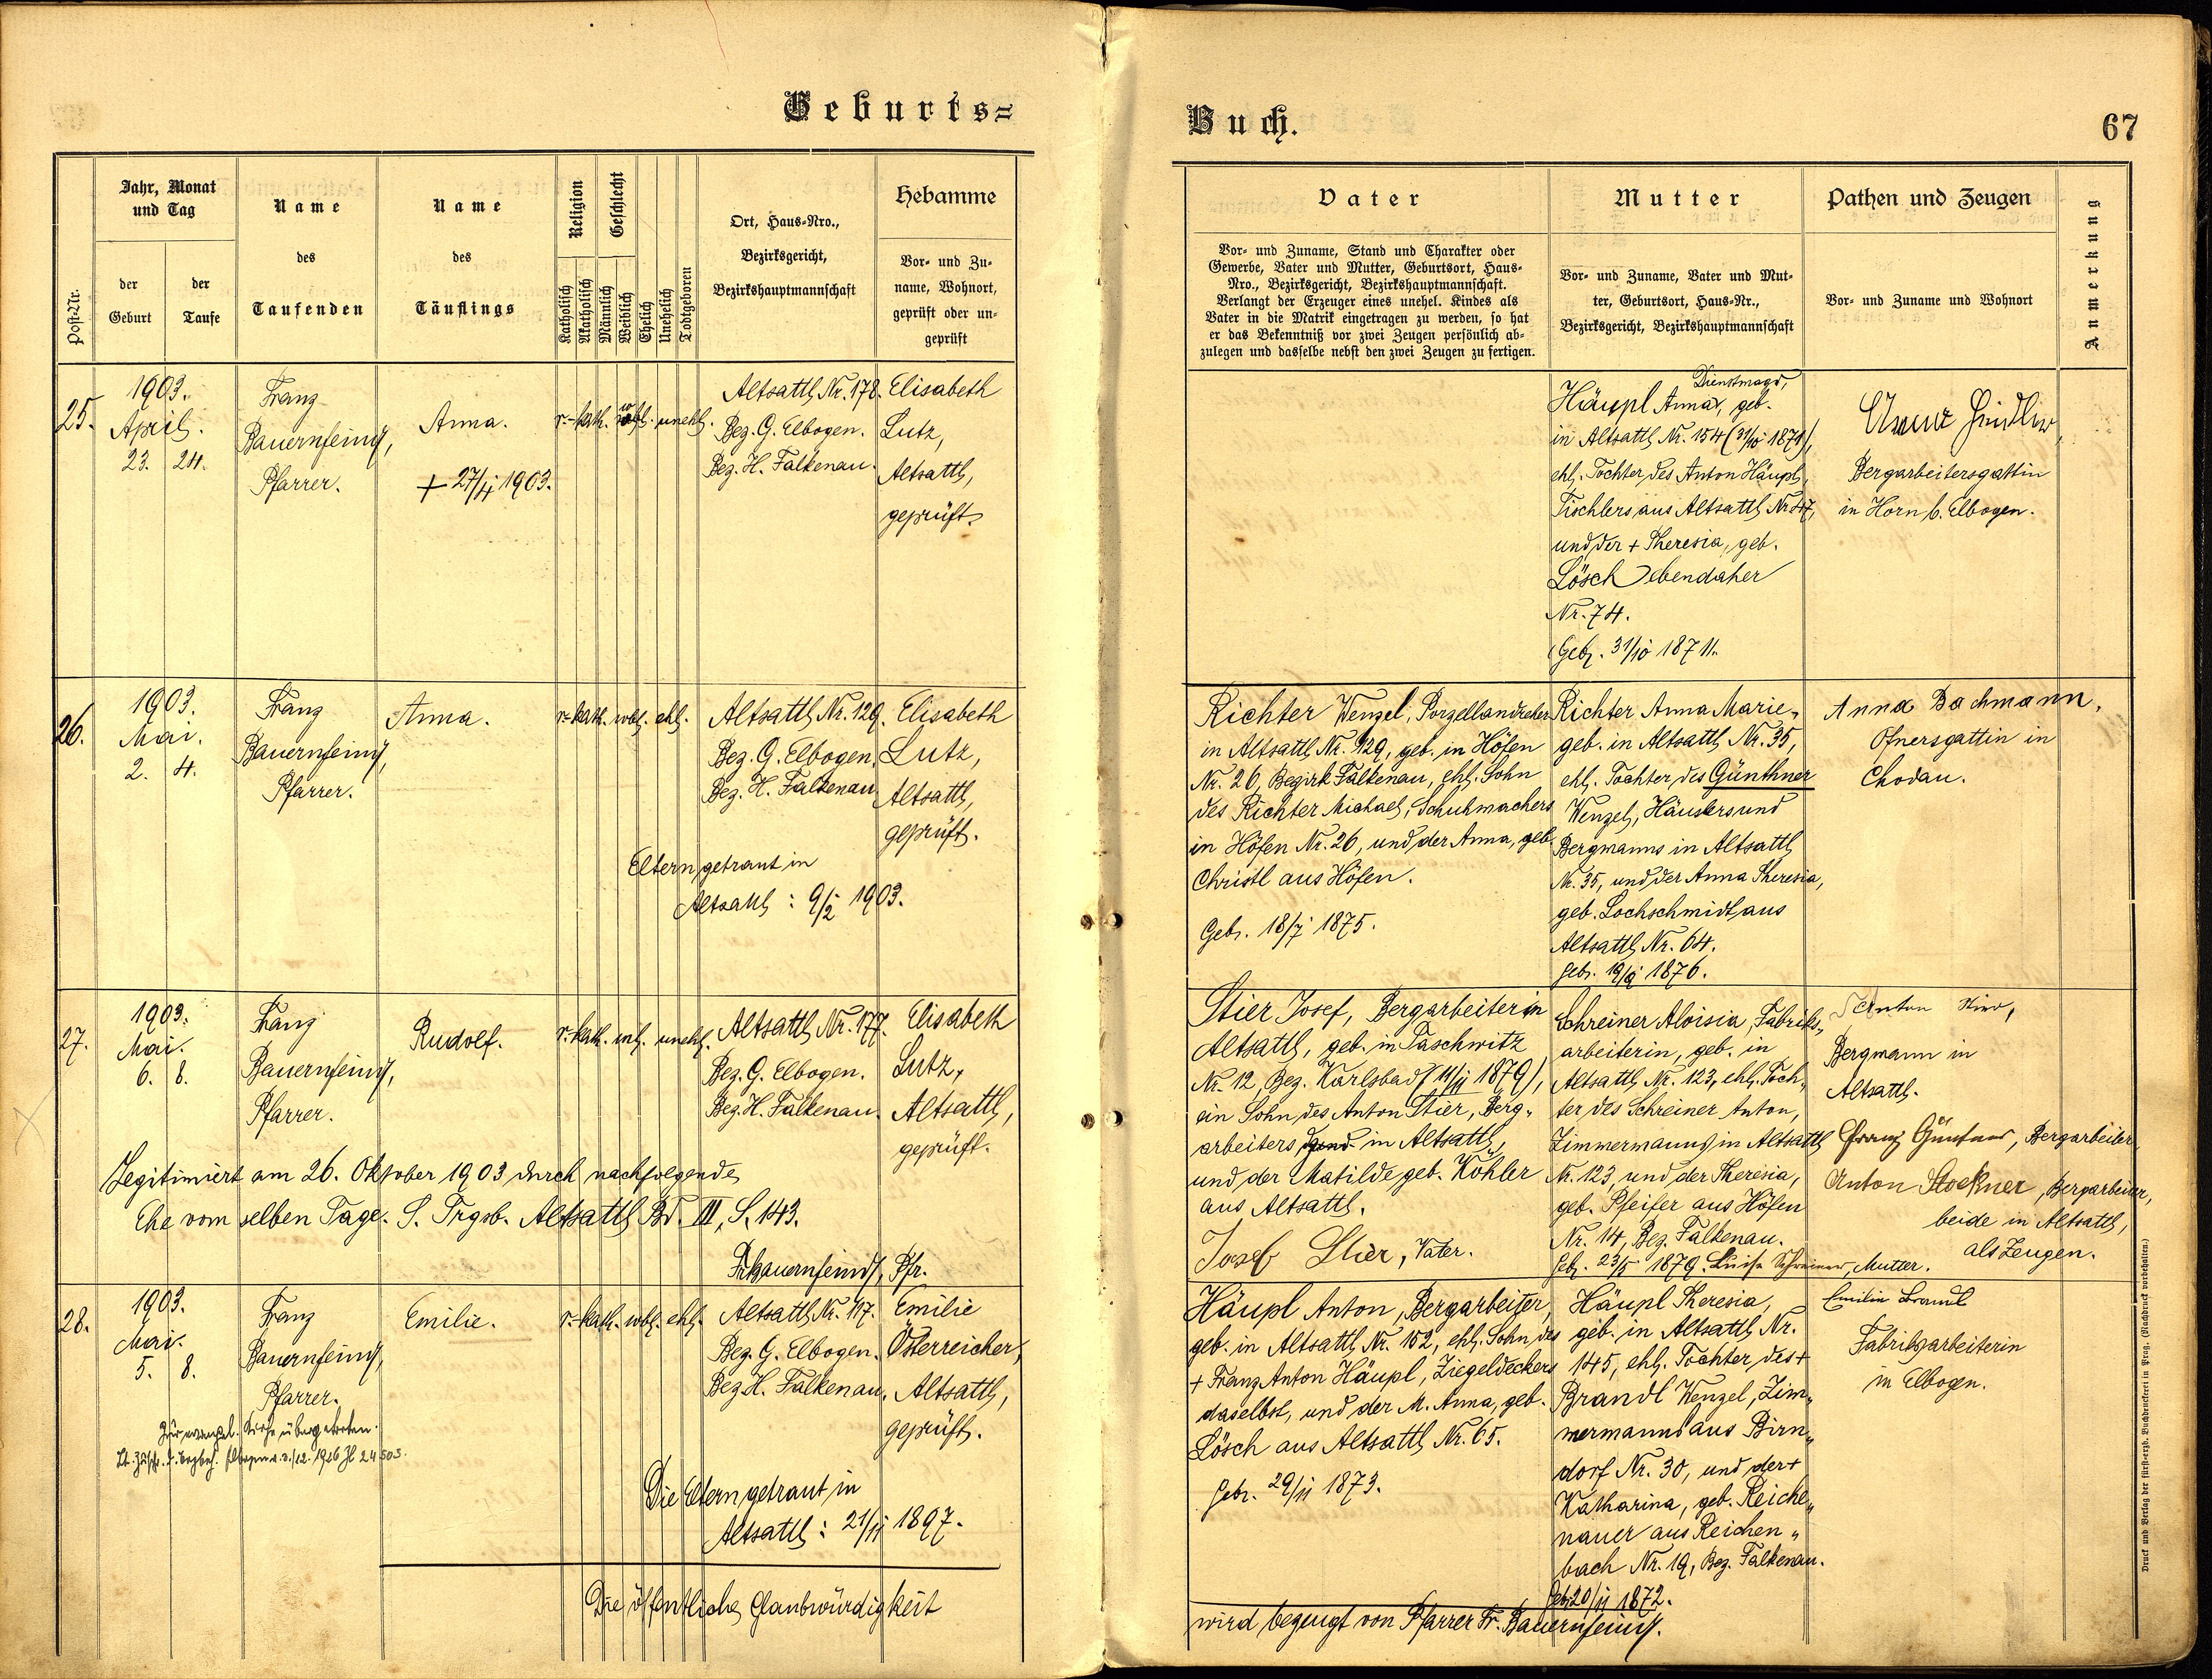 Geburts=
Buch.
67
Post-Nr.
Jahr, Monat
und Tag
der
Geburt
der
Taufe
Name
des
Taufenden
Name
des
Täuflings
Religion
Katholisch
Akatholisch
Geschlecht
Männlich
Weiblich
Ehelich
Unehelich
Todtgeboren
Ort, Haus-Nro.,
Bezirksgericht,
Bezirkshauptmannschaft
Hebamme
Vor- und Zu-
name, Wohnort,
geprüft oder un-
geprüft
Vater
Vor- und Zuname, Stand und Charakter oder
Gewerbe, Vater und Mutter, Geburtsort, Haus-
Nro., Bezirksgericht, Bezirkshauptmannschaft.
Verlangt der Erzeuger eines unehel. Kindes als
Vater in die Matrik eingetragen zu werden, so hat
er das Bekenntniß vor zwei Zeugen persönlich ab-
zulegen und dasselbe nebst den zwei Zeugen zu fertigen.
Mutter
Vor- und Zuname, Vater und Mut-
ter, Geburtsort, Haus-Nr.,
Bezirksgericht, Bezirkshauptmannschaft
Pathen und Zeugen
Vor- und Zuname und Wohnort
Anmerkung
25.
1903.
April.
23. 24.
Franz
Bauernfeind,
Pfarrer.
Anna.
+ 27/4 1903.
r.-kath. wbl. unehl.
Altsattl Nr. 178.
Bez. G. Elbogen.
Bez. H. Falkenau.
Elisabeth
Lutz,
Altsattl,
geprüft.
Dienstmagd,
Häupl Anna, geb.
in Altsattl Nr. 154 (31/10 1871),
ehl. Tochter des Anton Häupl,
Tischlers aus Altsattl Nr. 47,
und der + Theresia, geb.
Lösch ebendaher
Nr. 74.
Geb. 31/10 1871.
Anna
Bergarbeitersgattin
in Horn b. Elbogen.
26.
1903.
Mai.
2. 4.
Franz
Bauernfeind,
Pfarrer.
Anna.
r.-kath. wbl. ehl.
Altsattl Nr. 129.
Bez. G. Elbogen.
Bez. H. Falkenau.
Elisabeth
Lutz,
Altsattl,
geprüft.
Eltern getraut in
Altsattl: 9/2 1903.
Richter Wenzel, Porzellandreher
in Altsattl Nr. 129, geb. in Höfen
Nr. 26, Bezirk Falkenau, ehl. Sohn
des Richter Michael, Schuhmachers
in Höfen Nr. 26, und der Anna, geb.
Christl aus Höfen.
Geb. 18/7 1875.
Richter Anna Marie,
geb. in Altsattl Nr. 35,
ehl. Tochter des Günthner
Wenzel, Häuslers und
Bergmanns in Altsattl
Nr. 35, und der Anna Theresia,
geb. Lochschmidt aus
Altsattl Nr. 64.
Geb. 19/9 1876.
Anna Bachmann,
Ofnersgattin in
Chodau.
27.
1903.
Mai.
6. 8.
Franz
Bauernfeind,
Pfarrer.
Rudolf.
r.-kath. ml. unehl.
Altsattl Nr. 177.
Bez. G. Elbogen.
Bez. H. Falkenau.
Elisabeth
Lutz,
Altsattl,
geprüft.
Legitimiert am 26. Oktober 1903 durch nachfolgende
Ehe vom selben Tage. S. Trgsb. Altsattl Bd. III, S. 143.
Fr. Bauernfeind, Pfr.
Stier Josef, Bergarbeiter in
Altsattl, geb. in Taschwitz
Nr. 12, Bez. Karlsbad (11/11 1879),
ein Sohn des Anton Stier, Berg-
arbeiters in Altsattl,
und der Matilde geb. Köhler
aus Altsattl.
Josef Stier, Vater.
Schreiner Aloisia, Fabriks-
arbeiterin, geb. in
Altsattl Nr. 123, ehl. Toch-
ter des Schreiner Anton,
Zimmermanns in Altsattl
Nr. 123, und der Theresia,
geb. Pfeifer aus Höfen
Nr. 14, Bez. Falkenau.
Geb. 23/5 1879. Luise Schreiner, Mutter.
Anton Stier,
Bergmann in
Altsattl.
Franz Günthner, Bergarbeiter,
Anton Stockner, Bergarbeiter,
beide in Altsattl,
als Zeugen.
28.
1903.
Mai.
5. 8.
Franz
Bauernfeind,
Pfarrer.
Zur evangel. Kirche übergetreten.
Emilie.
r.-kath. wbl. ehl.
Altsattl Nr. 117.
Bez. G. Elbogen.
Bez. H. Falkenau.
Emilie
Österreicher,
Altsattl,
geprüft.
Die Eltern getraut in
Altsattl: 21/11 1897.
Häupl Anton, Bergarbeiter,
geb. in Altsattl Nr. 152, ehl. Sohn des
+ Franz Anton Häupl, Ziegeldeckers
daselbst, und der M. Anna, geb.
Lösch aus Altsattl Nr. 65.
Geb. 29/11 1873.
Häupl Theresia,
geb. in Altsattl Nr.
145, ehl. Tochter des +
Brandl Wenzel, Zim-
mermanns aus Birn-
dorf Nr. 30, und der +
Katharina, geb. Reiche-
nauer aus Reichen-
bach Nr. 19, Bez. Falkenau.
Geb. 20/11 1872.
Emilie Brandl
Fabriksarbeiterin
in Elbogen.
Die öffentliche Glaubwürdigkeit
wird bezeugt von Pfarrer Fr. Bauernfeind.
Druck und Verlag der fürst-erzb. Buchdruckerei in Prag. (Nachdruck vorbehalten.)